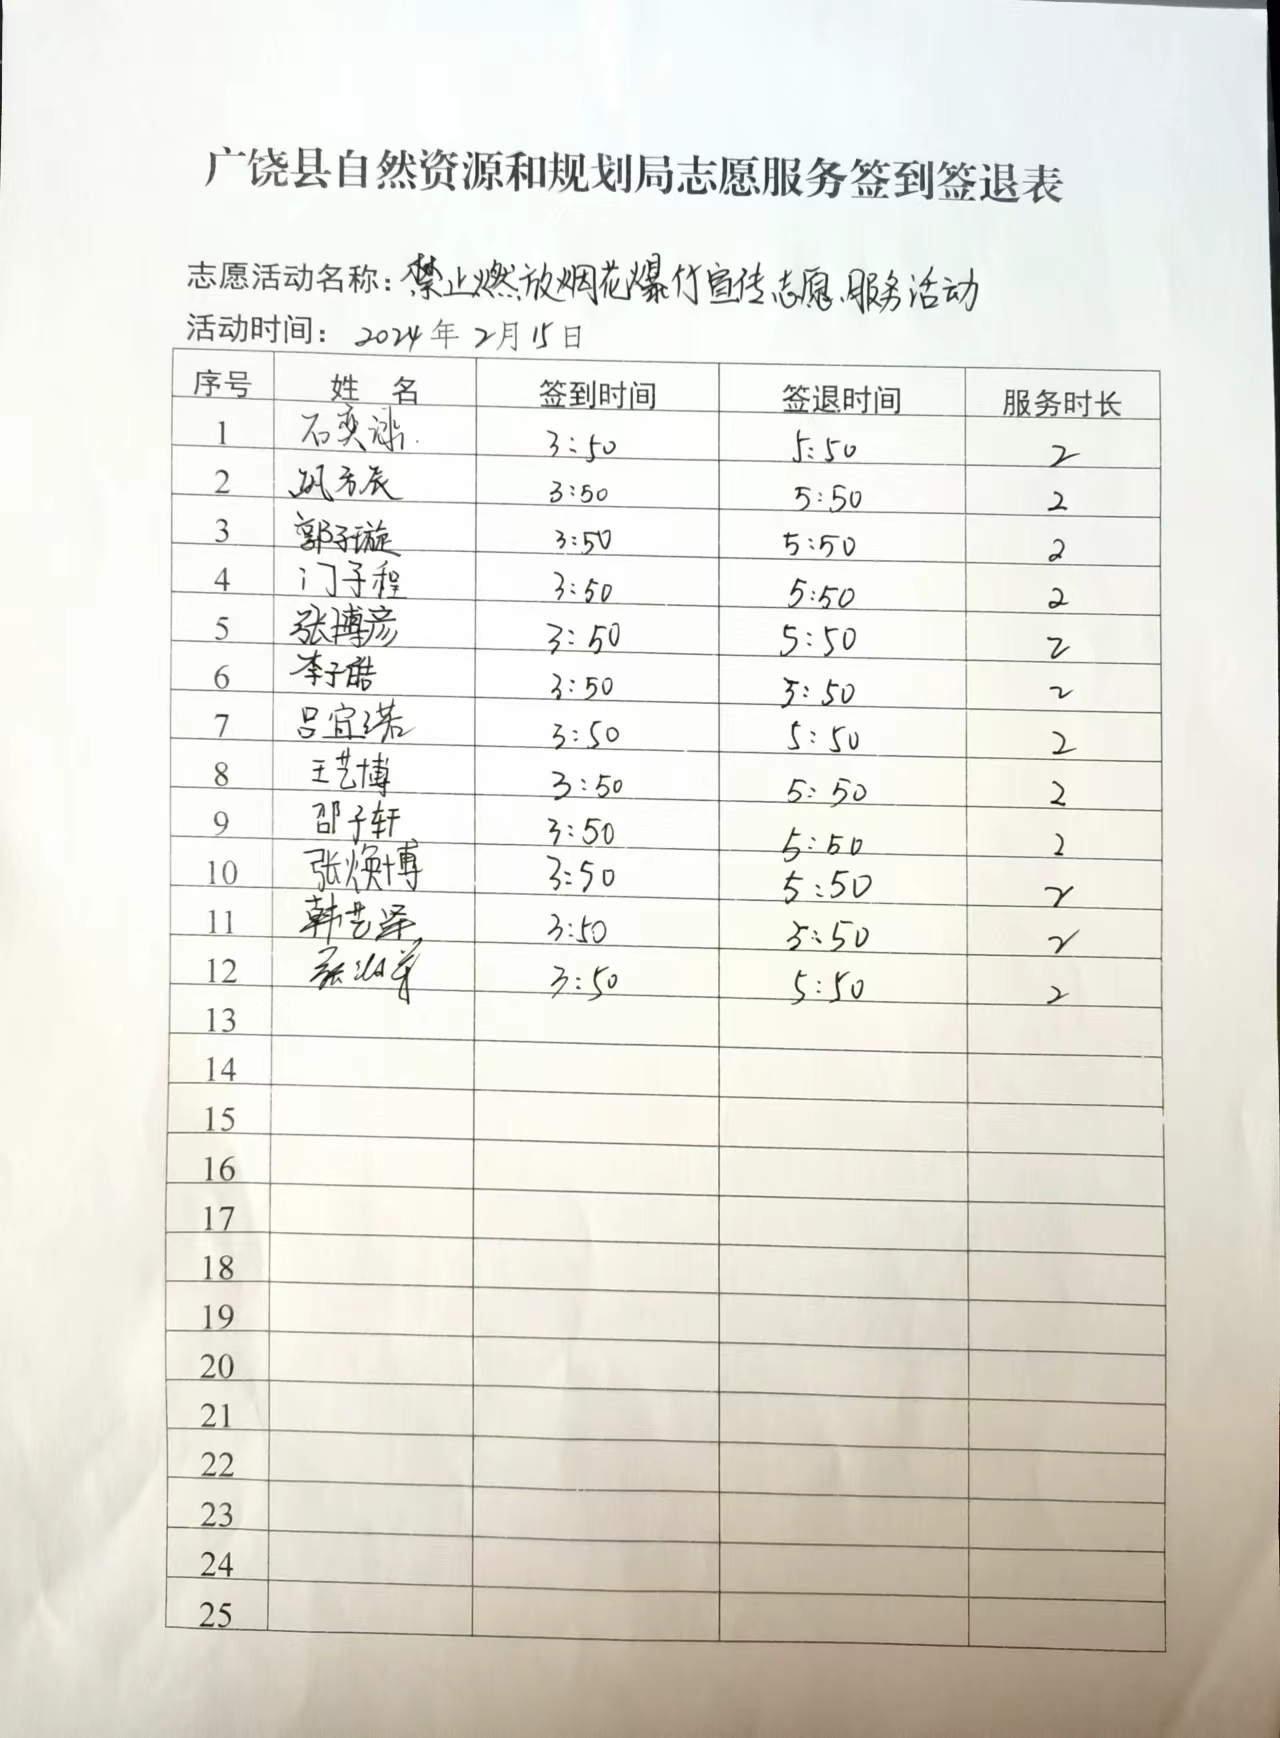 广饶县自然资源和规划局志愿服务签到签退表
志愿活动名称：禁止燃放烟花爆竹宣传志愿服务活动
活动时间：2024年2月15日
序号 姓 名 签到时间 签退时间 服务时长
1 石奕 3:50 5:50 2
2 3:50 5:50 2
3 郭子璇 3:50 5:50 2
4 门子程 3:50 5:50 2
5 张博彦 3:50 5:50 2
6 李子皓 3:50 5:50 2
7 吕宜诺 3:50 5:50 2
8 王艺博 3:50 5:50 2
9 邵子轩 3:50 5:50 2
10 张焕博 3:50 5:50 2
11 韩艺泽 3:50 5:50 2
12 张 3:50 5:50 2
13
14
15
16
17
18
19
20
21
22
23
24
25